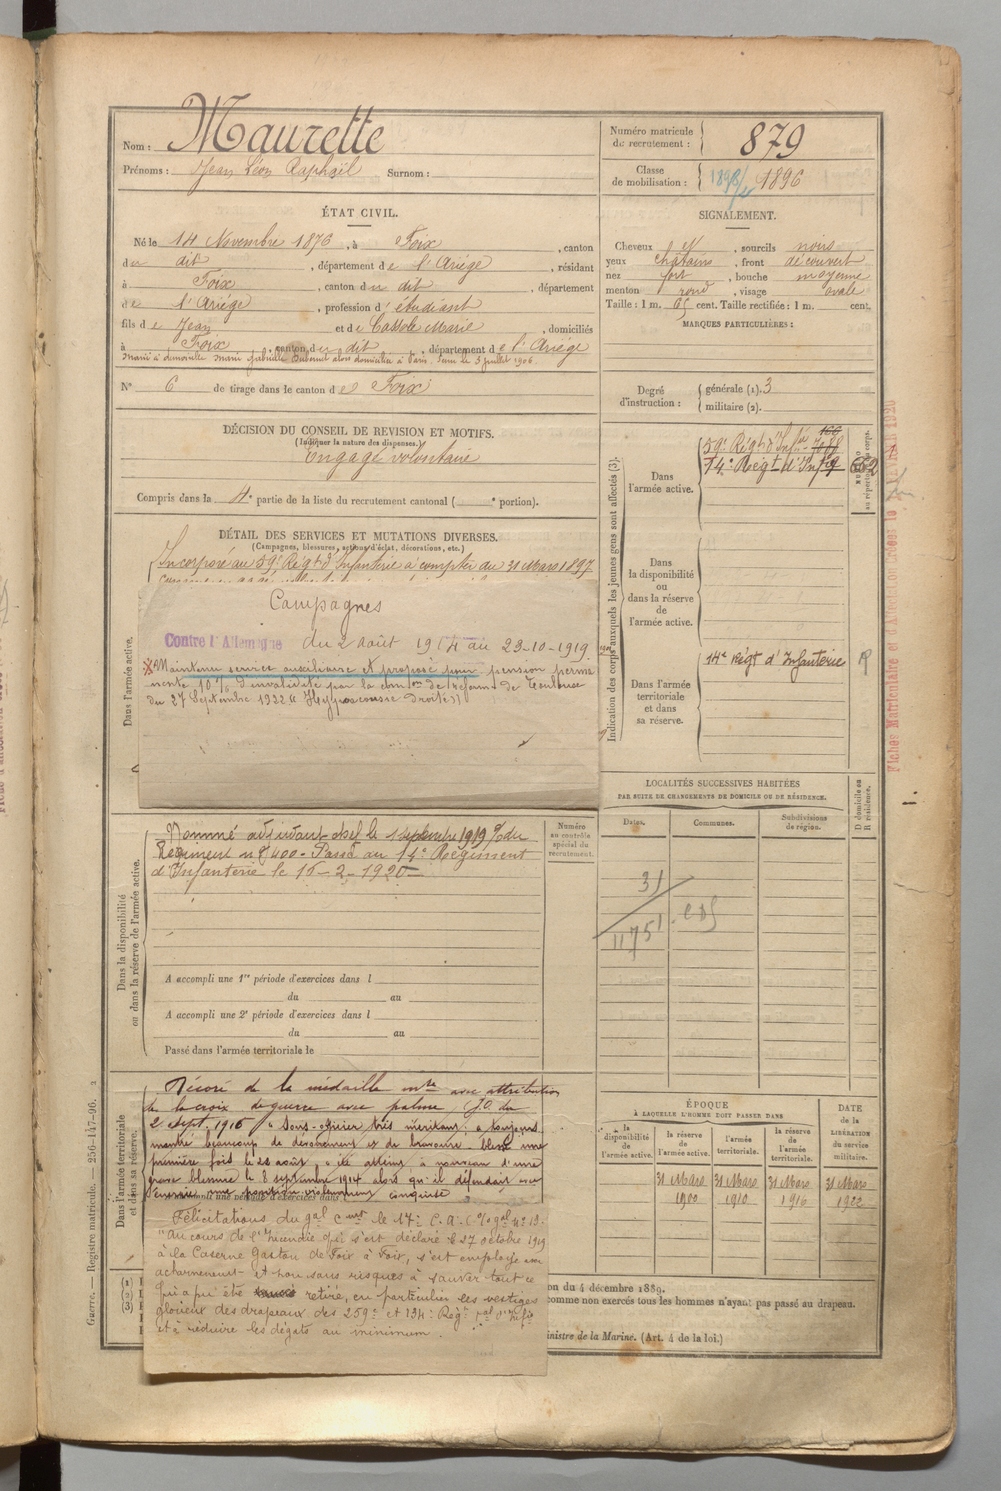 Nom : Maurette
Prénoms : Jean Léon Raphaël Surnom :
Numéro matricule
de recrutement : 879
Classe
de mobilisation : 1896
ÉTAT CIVIL.
Né le 14 Novembre 1876, à Foix, canton
du dit, département de l'Ariége, résidant
à Foix, canton du dit, département
de l'Ariége, profession d'étudiant
fils de Jean et de Cassole Marie, domiciliés
à Foix, canton du dit, département de l'Ariége
Marié à demoiselle Marie Gabrielle Dubuit alors domicilié à Paris. le 3 juillet 1906.
N° 6 de tirage dans le canton de Foix
SIGNALEMENT.
Cheveux N, sourcils noirs
yeux chatains, front découvert
nez fort, bouche moyenne
menton rond, visage ovale
Taille : 1 m. 65 cent. Taille rectifiée : 1 m. cent.
MARQUES PARTICULIÈRES :
Degré
d'instruction :
générale (1). 3
militaire (2).
DÉCISION DU CONSEIL DE REVISION ET MOTIFS.
(Indiquer la nature des dispenses.)
Engagé volontaire
Compris dans la 4e partie de la liste du recrutement cantonal ( e portion).
DÉTAIL DES SERVICES ET MUTATIONS DIVERSES.
(Campagnes, blessures, actions d'éclat, décorations, etc.)
Incorporé au 59e Régt d'Infanterie à compter du 31 Mars 1897
Dans l'armée active.
Campagnes
Contre l'Allemagne du 2 août 1914 au 23-10-1919.
Maintenu service auxiliaire et proposé pour pension perma
nente 10% d'invalidité par la comon de réforme de Toulouse
du 27 Septembre 1922
Indication des corps auxquels les jeunes gens sont affectés (3).
Dans
l'armée active.
59e Régt d'Infie
14e Régt d'Infie
Dans
la disponibilité
ou
dans la réserve
de
l'armée active.
Dans l'armée
territoriale
et dans
sa réserve.
14e Régt d'Infanterie
NUMÉRO
au répertoire du corps.
Dans la disponibilité
ou dans la réserve de l'armée active.
Nommé adjudant-chef le 1 septembre 1919 % du
Régiment n° 400 - Passé au 14e Régiment
d'Infanterie le 15-2-1920
Numéro
au contrôle
spécial du
recrutement.
A accompli une 1re période d'exercices dans l
du au
A accompli une 2e période d'exercices dans l
du au
Passé dans l'armée territoriale le
LOCALITÉS SUCCESSIVES HABITÉES
PAR SUITE DE CHANGEMENTS DE DOMICILE OU DE RÉSIDENCE.
Dates. Communes. Subdivisions
de région.
D domicile ou
R résidence.
31
1175
Dans l'armée territoriale
et dans sa réserve.
Décoré de la médaille mre avec attribution
de la croix de guerre avec palme, (J.O. du
2 Sept. 1916 "Sous-officier très méritant ; a toujours
montré beaucoup de dévouement et de bravoure. Blessé une
première fois le 22 août, a été atteint à nouveau d'une
grave blessure le 8 septembre 1914 alors qu'il défendait avec
énergie une position violemment conquise
Félicitations du gal cmt le 17e C.A.
"Au cours de l'Incendie qui s'est déclaré le 27 octobre 1919
à la Caserne Gaston de Foix à Foix, s'est employé avec
acharnement et non sans risques à sauver tout ce
qui a pu être retiré, en particulier les vestiges
glorieux des drapeaux des 259e et 134e Régt tal d'Infie
et à réduire les dégâts au minimum.
ÉPOQUE
À LAQUELLE L'HOMME DOIT PASSER DANS
la
disponibilité
de
l'armée active.
la réserve
de
l'armée active.
l'armée
territoriale.
la réserve
de
l'armée
territoriale.
DATE
de la
LIBÉRATION
du service
militaire.
31 Mars 31 Mars 31 Mars 31 Mars
1900 1910 1916 1922
(1)
(2)
(3)
on du 4 décembre 1889.
comme non exercés tous les hommes n'ayant pas passé au drapeau.
inistre de la Marine. (Art. 4 de la loi.)
Guerre. — Registre matricule. — 256-147-96. 2